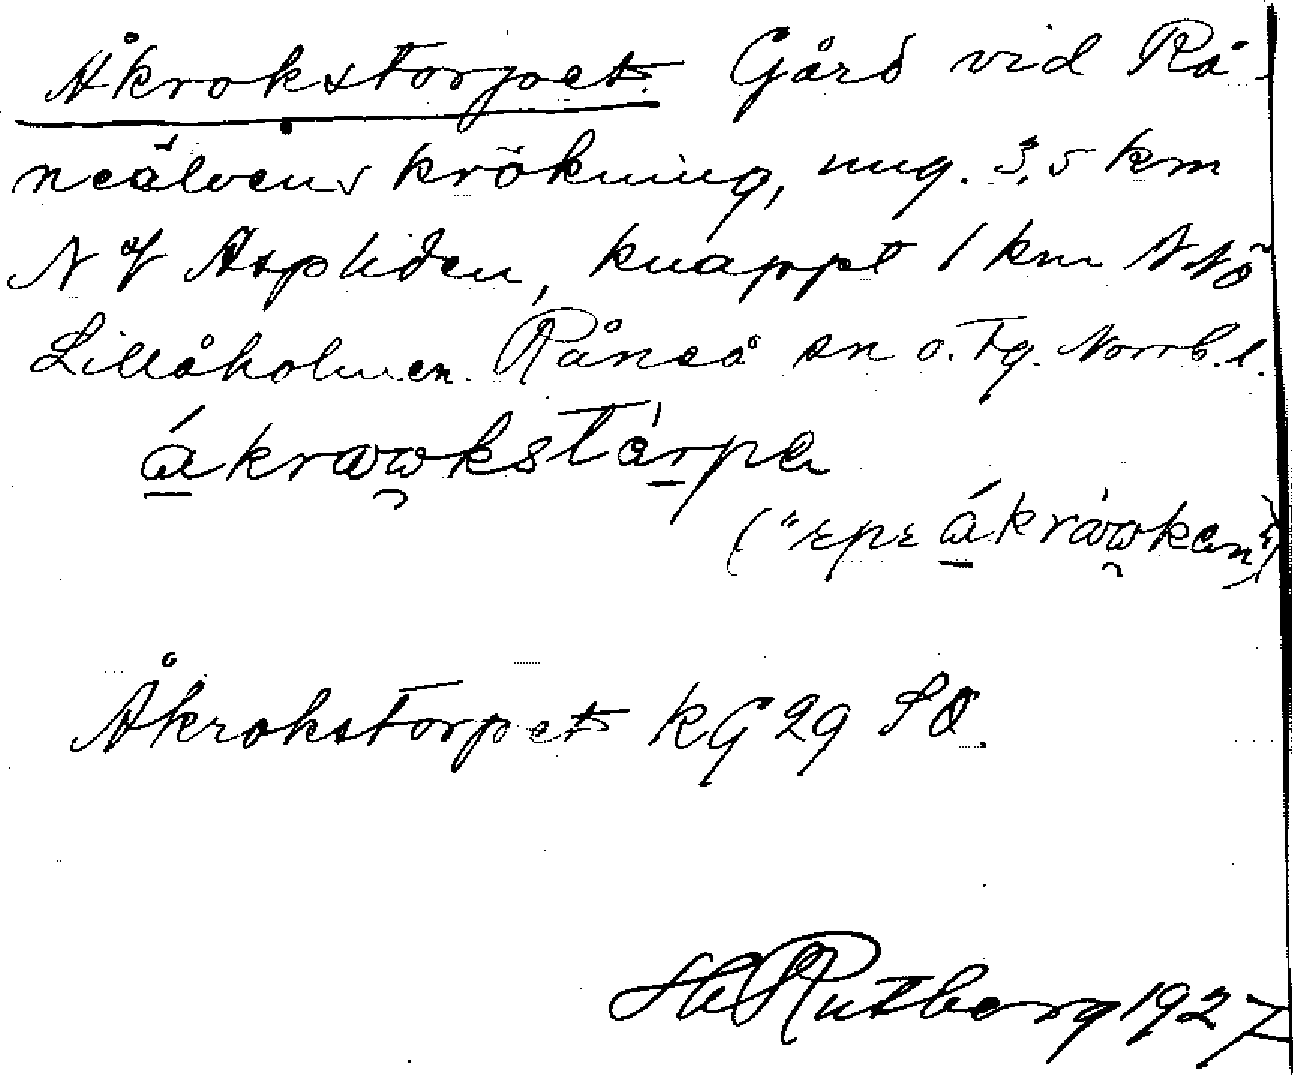 Åkrokstorpet. Gård vid Rå-
neälvens krökning, ung. 3,5 km
N of Aspliden, knappt 1 km NNÖ
Lillåholmen. Råneå sn o. Tg. Norrb. l.
ákrωωkstarpa
("epε ákrωωkan")
Åkrokstorpet KG 29 SO.
H Rutberg 1927